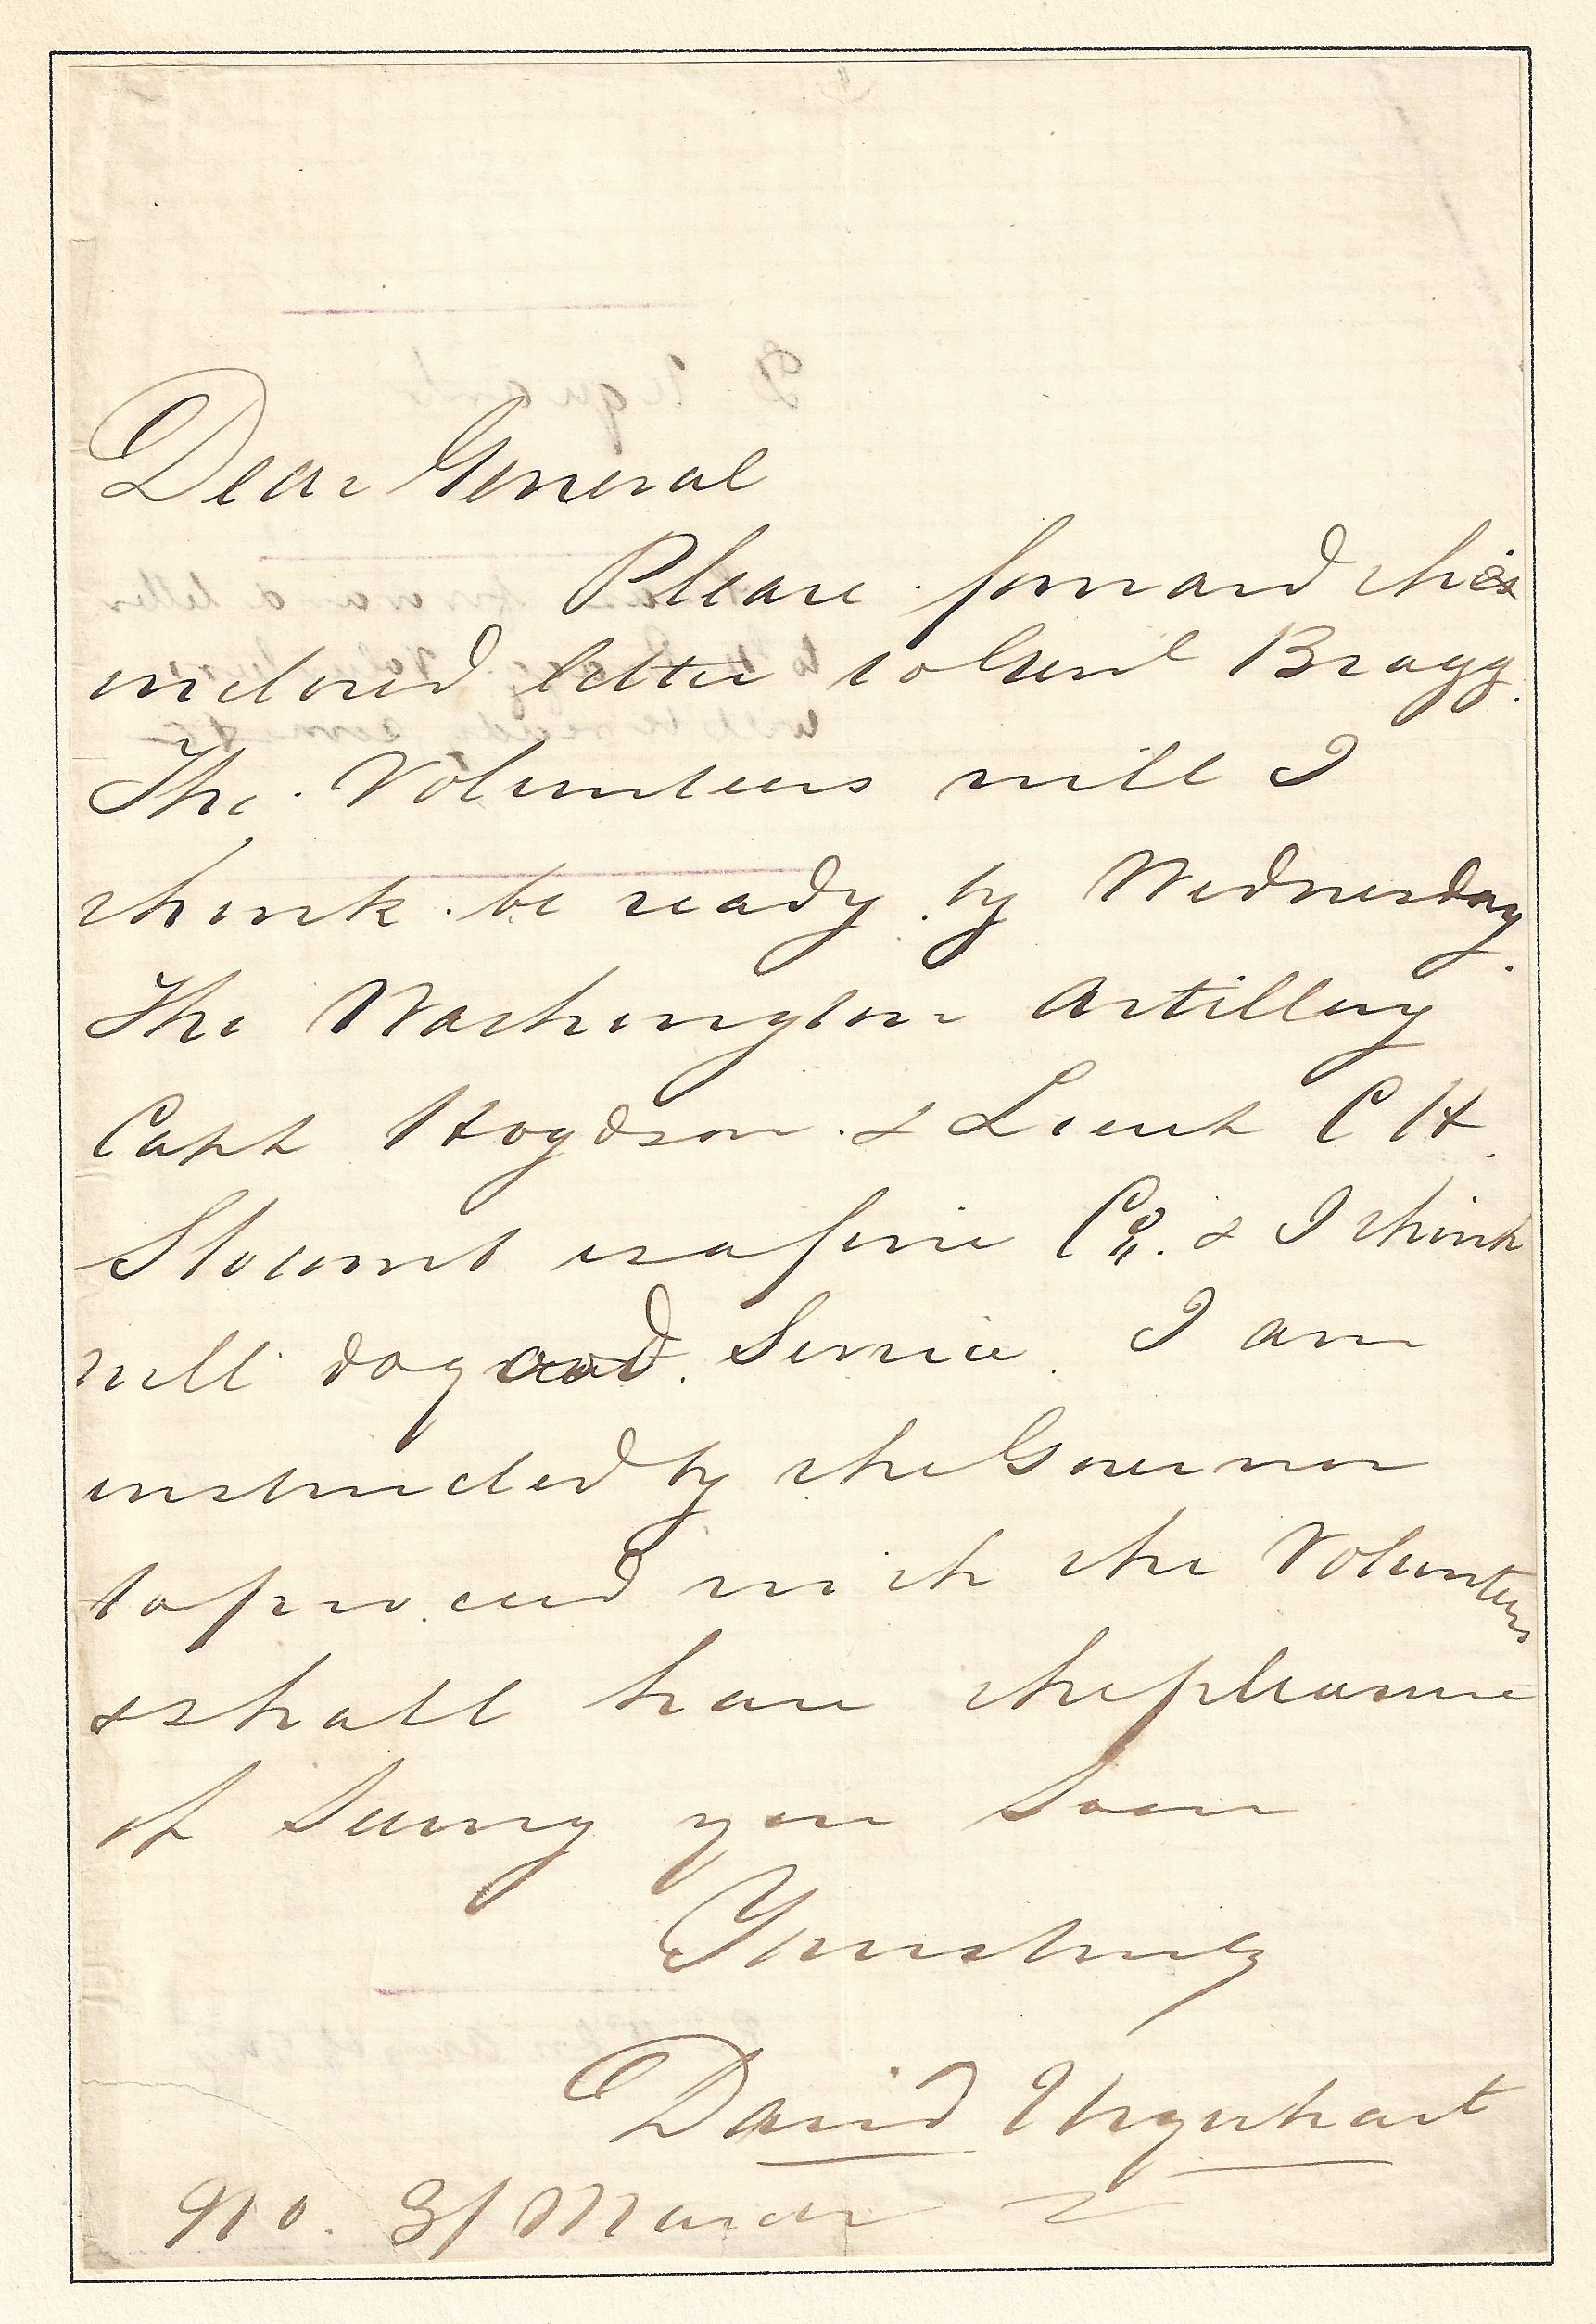 Dear General
Please forward this
enclosed letter to Genl Bragg.
The Volunteers will I
think be ready by Wednesday.
The Washington Artillery
Capt Hogdson & Lieut C H.
Slocomb is a fine Co. & I think
will do good Service. I am
instructed by the Governor
to proceed with the Volunteers
& shall have the pleasure
of Seeing you Soon
Yours truly
David Urquhart
N O. 31 March